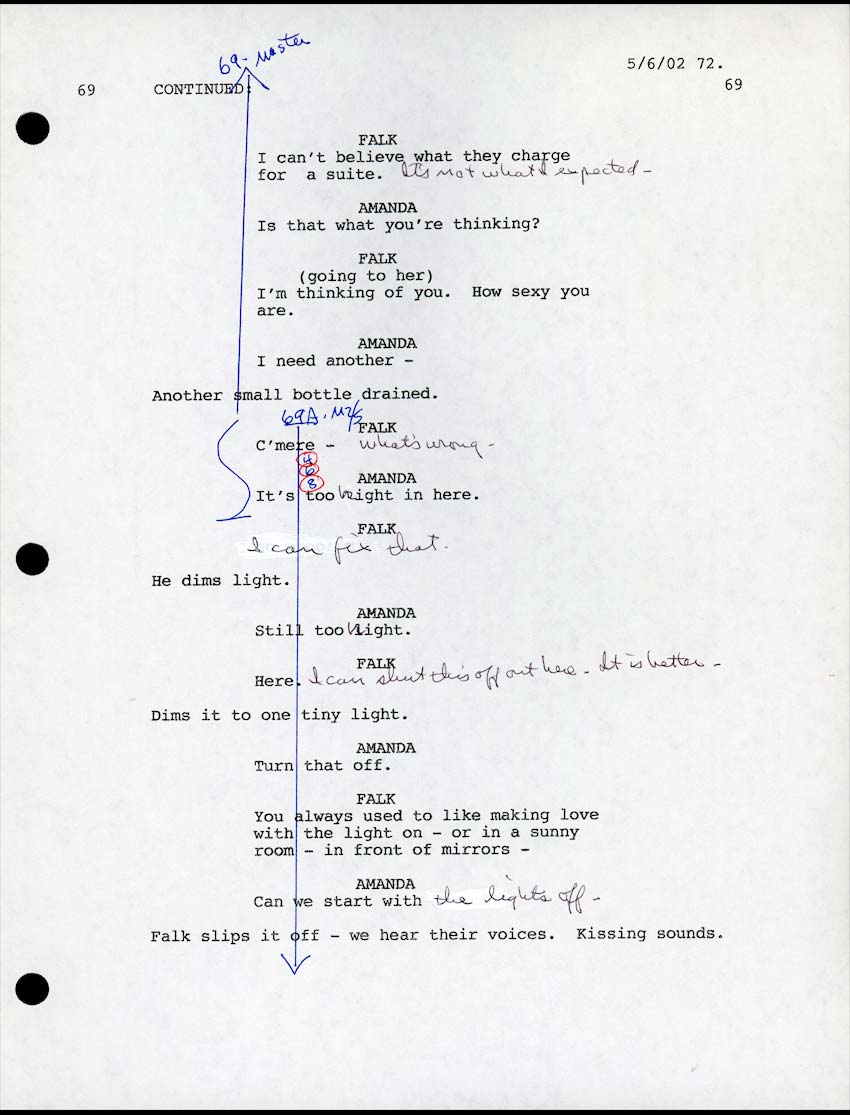 69- Master
5/6/02 72.
69 CONTINUED: 69
FALK
I can't believe what they charge
for a suite. It's not what I expected -
AMANDA
Is that what you're thinking?
FALK
(going to her)
I'm thinking of you. How sexy you
are.
AMANDA
I need another -
Another small bottle drained.
69A. M2/s
FALK
C'mere - what's wrong -
4
6
8
AMANDA
It's too bright in here.
FALK
I can fix that.
He dims light.
AMANDA
Still too bright.
FALK
Here. I can shut this off out here. It is better -
Dims it to one tiny light.
AMANDA
Turn that off.
FALK
You always used to like making love
with the light on - or in a sunny
room - in front of mirrors -
AMANDA
Can we start with the lights off -
Falk slips it off - we hear their voices. Kissing sounds.